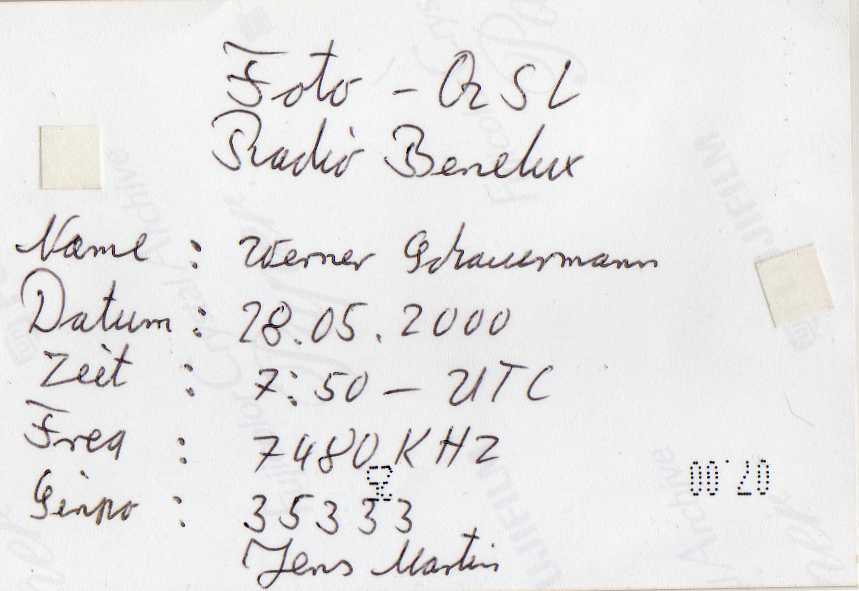 Foto - QSL
Radio Benelux
Name : Werner Schauermann
Datum : 28.05.2000
Zeit : 7:50 - UTC
Freq : 7480 KHz
Sinpo : 35333
Jens Martin